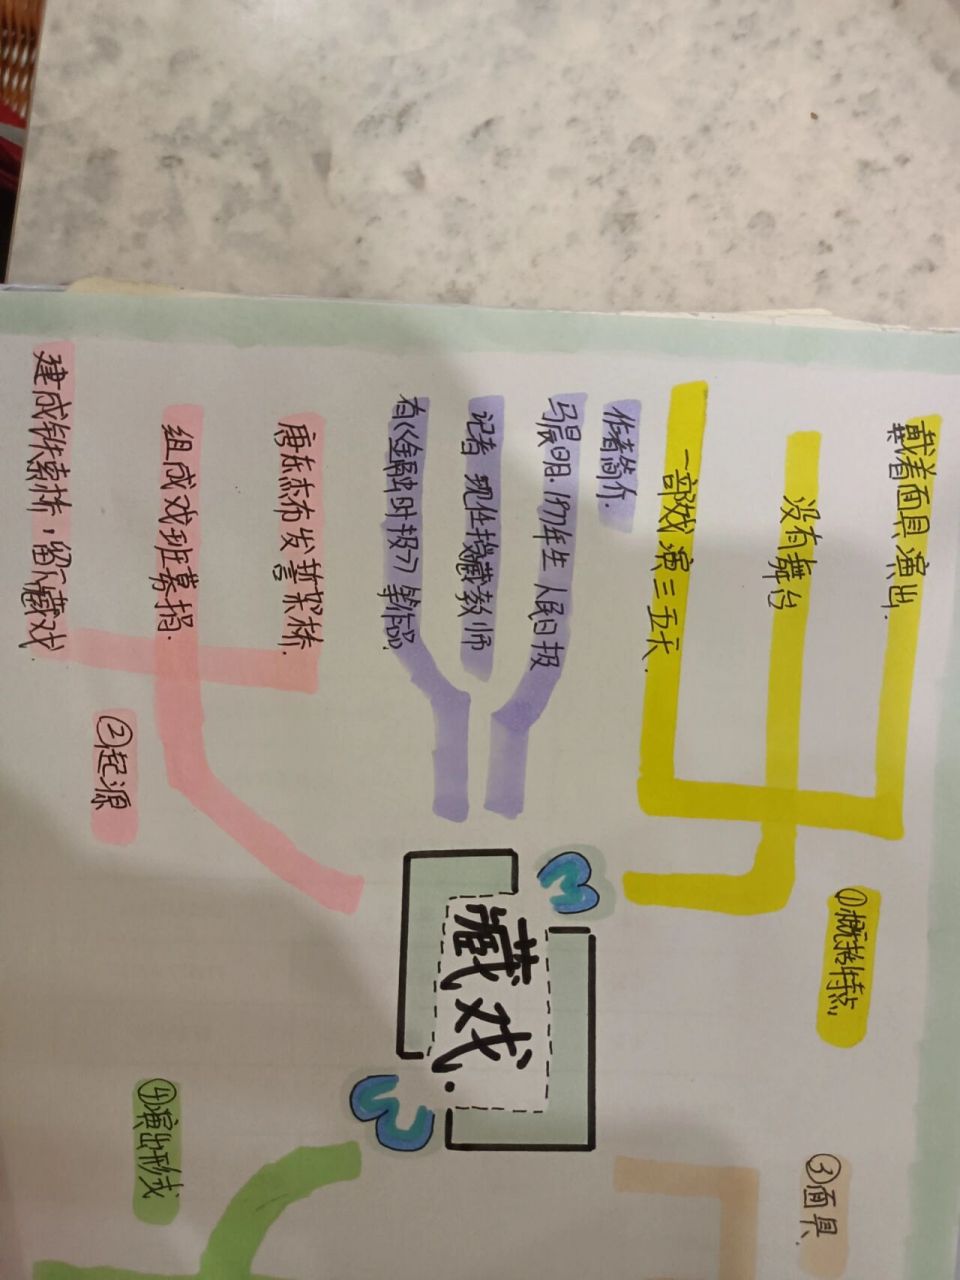 藏戏.
①概括特点
戴着面具演出.
没有舞台
一部戏演三五天.
作者简介.
马晨明.1971年生 人民日报
记者 现任援藏教师
有《金融时报》等作品.
②起源
唐东杰布发誓架桥.
组成戏班募捐.
建成铁索桥,留下藏戏.
③面具.
④演出形式